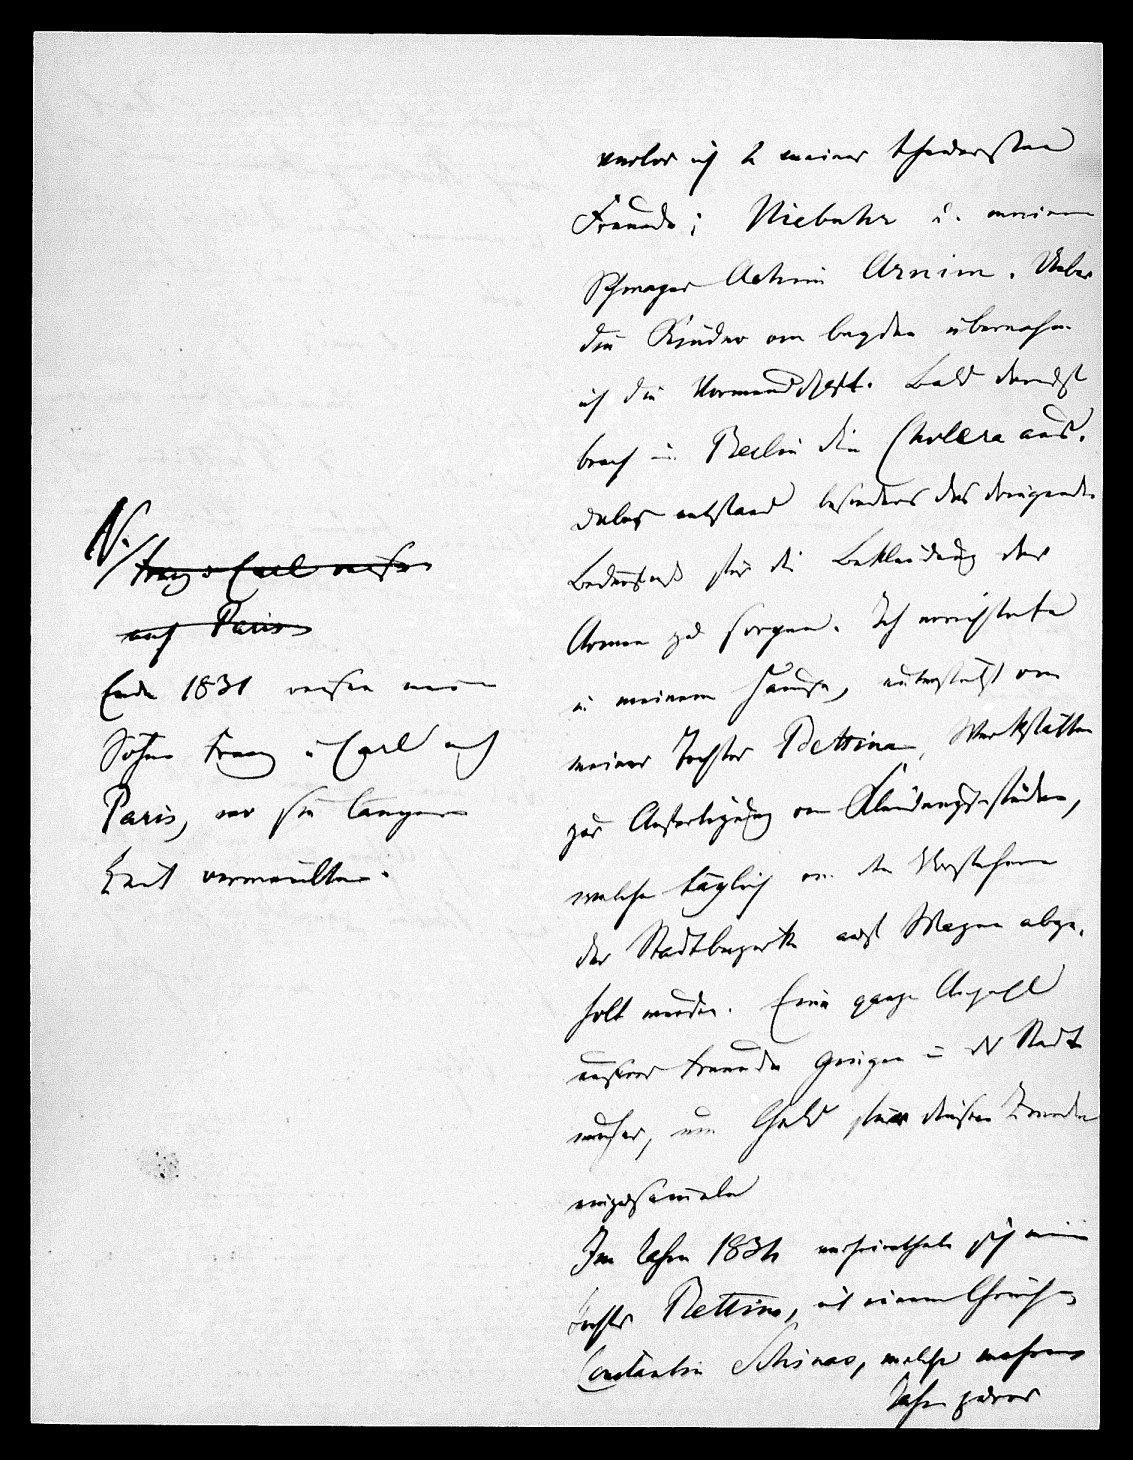 verlor ich 2 meiner theuersten
Freunde; Niebuhr u. meinen
Schwager Achim Arnim. Ueber
die Kinder von beyden übernahm
ich die Vormundschaft. Bald darauf
brach in Berlin die Cholera aus.
daher entstand besonders das dringende
Bedürfniß für die Bekleidung der
Armen zu sorgen. Ich errichtete
in meinem Hause, unterstützt von
meiner Tochter Bettina, Werkstätten
zur Anfertigung von Kleidungsstücken,
welche täglich von den Vorstehern
der Stadtbezirke auf Wagen abge-
holt wurden. Eine ganze Anzahl
unsrer Freunde gingen in der Stadt
umher, um Geld für diesen Zweck
einzusammeln
Im Jahre 1834 verheirathete sich meine
Tochter Bettina, mit einem Griechen
Constantin Schinas, welcher mehrere
Jahre zuvor
N./ Franz u Carl reisen
nach Paris
Ende 1831 reisen meine
Söhne Franz u Carl nach
Paris, wo sie längere
Zeit verweilten.